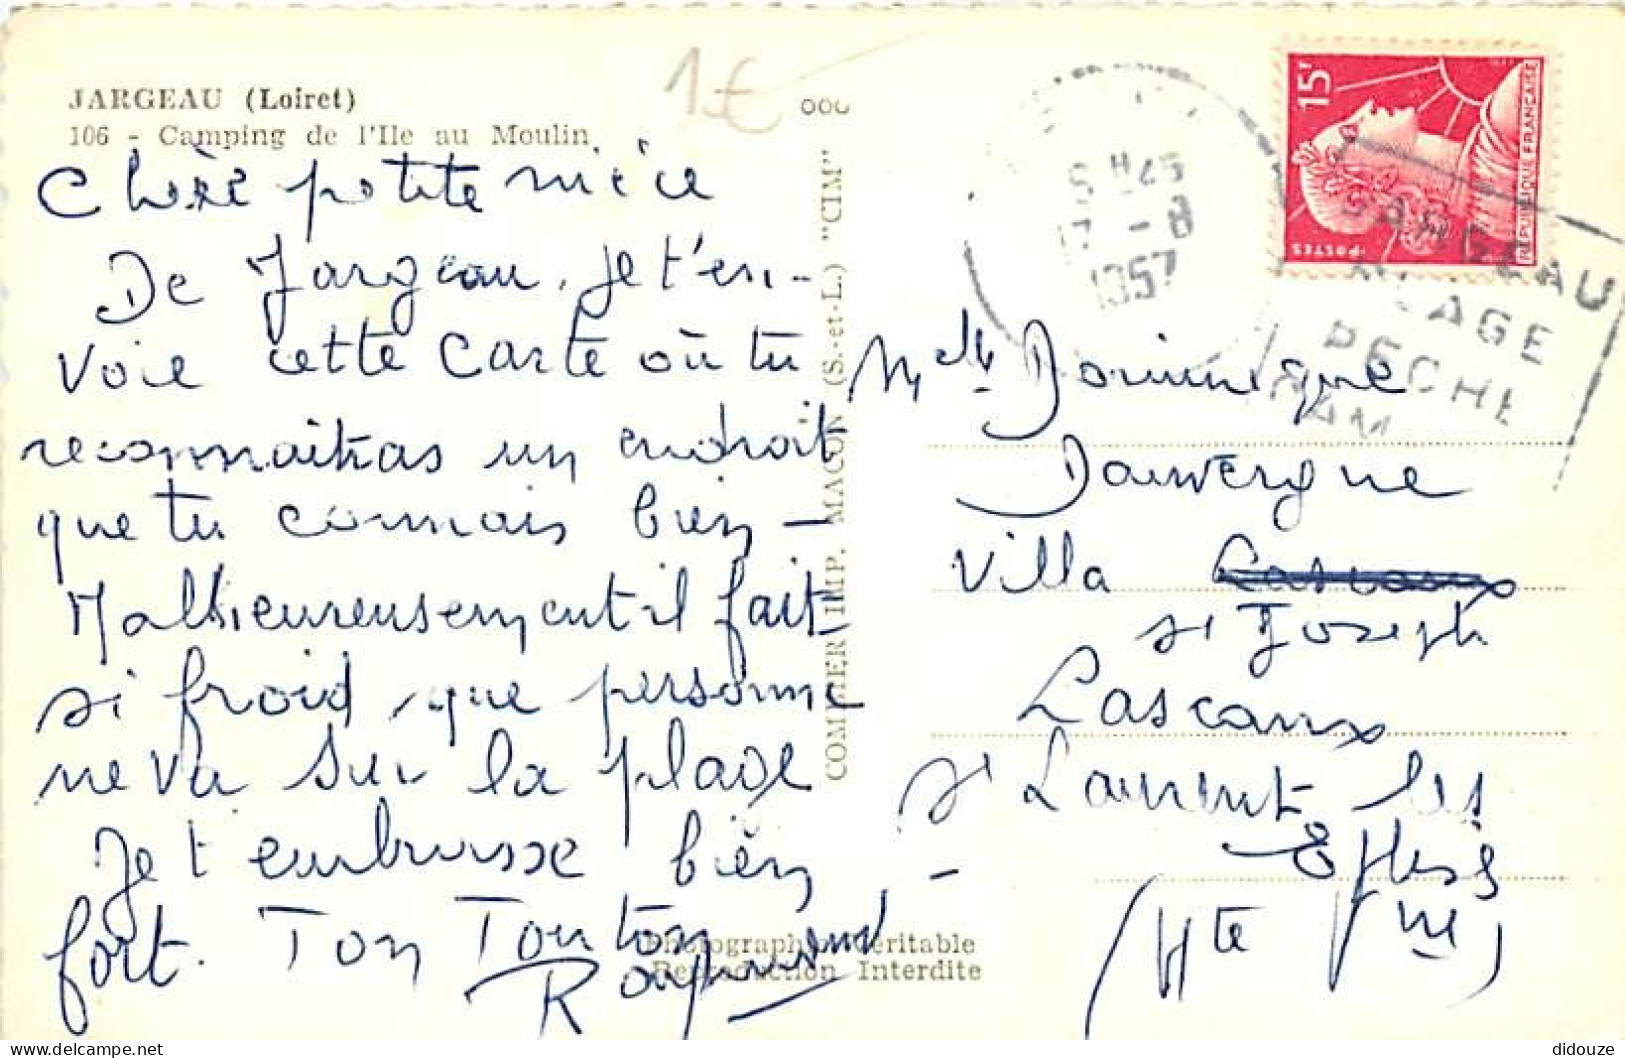 JARGEAU (Loiret)
106 - Camping de l'Ile au Moulin
1€
Chère petite nièce
De Jargeau, je t'en-
voie cette carte où tu
reconnaitras un endroit
que tu connais bien -
Malheureusement il fait
si froid, que personne
ne va sur la plage
Je t'embrasse bien
fort. Ton Tonton
Raymond
COMBIER IMP. MACON (S.-et-L.) "CIM"
Photographie Véritable
Reproduction Interdite
15F
POSTES
REPUBLIQUE FRANCAISE
H 45
17 - 8
1957
JARGEAU
PECHE
Melle Dominique
Dauvergne
Villa
St Joseph
Lascaux
St Laurent les
Eglises
(Hte Vne)
didouze